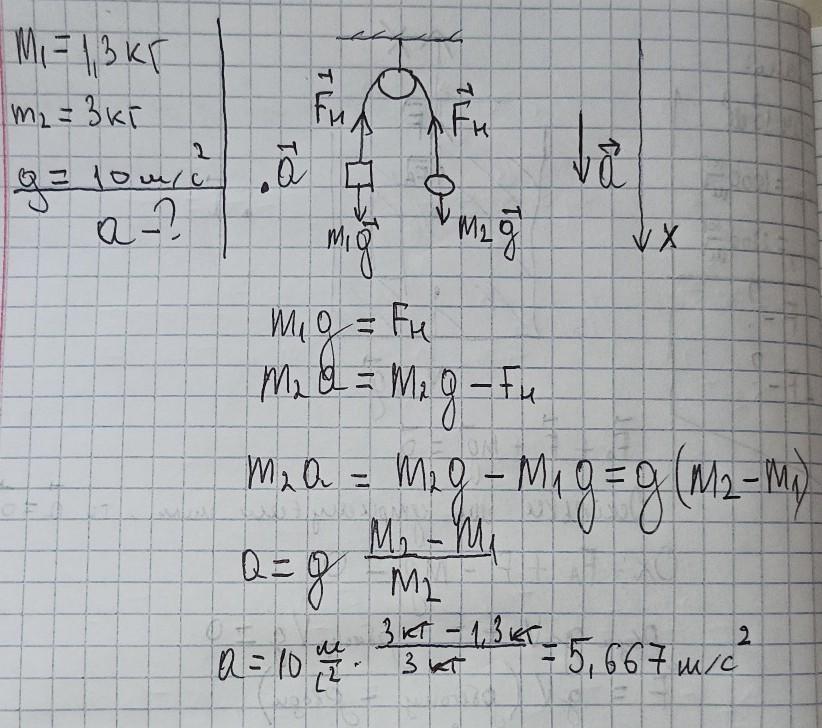 m₁ = 1,3 кг
m₂ = 3 кг
g = 10 м/с²
a - ?
F⃗н F⃗н
. a⃗ a⃗
m₁g⃗ m₂g⃗ x
m₁g = Fн
m₂a = m₂g - Fн
m₂a = m₂g - m₁g = g(m₂ - m₁)
a = g (m₂ - m₁)/m₂
a = 10 м/с² · (3 кг - 1,3 кг)/(3 кг) = 5,667 м/с²